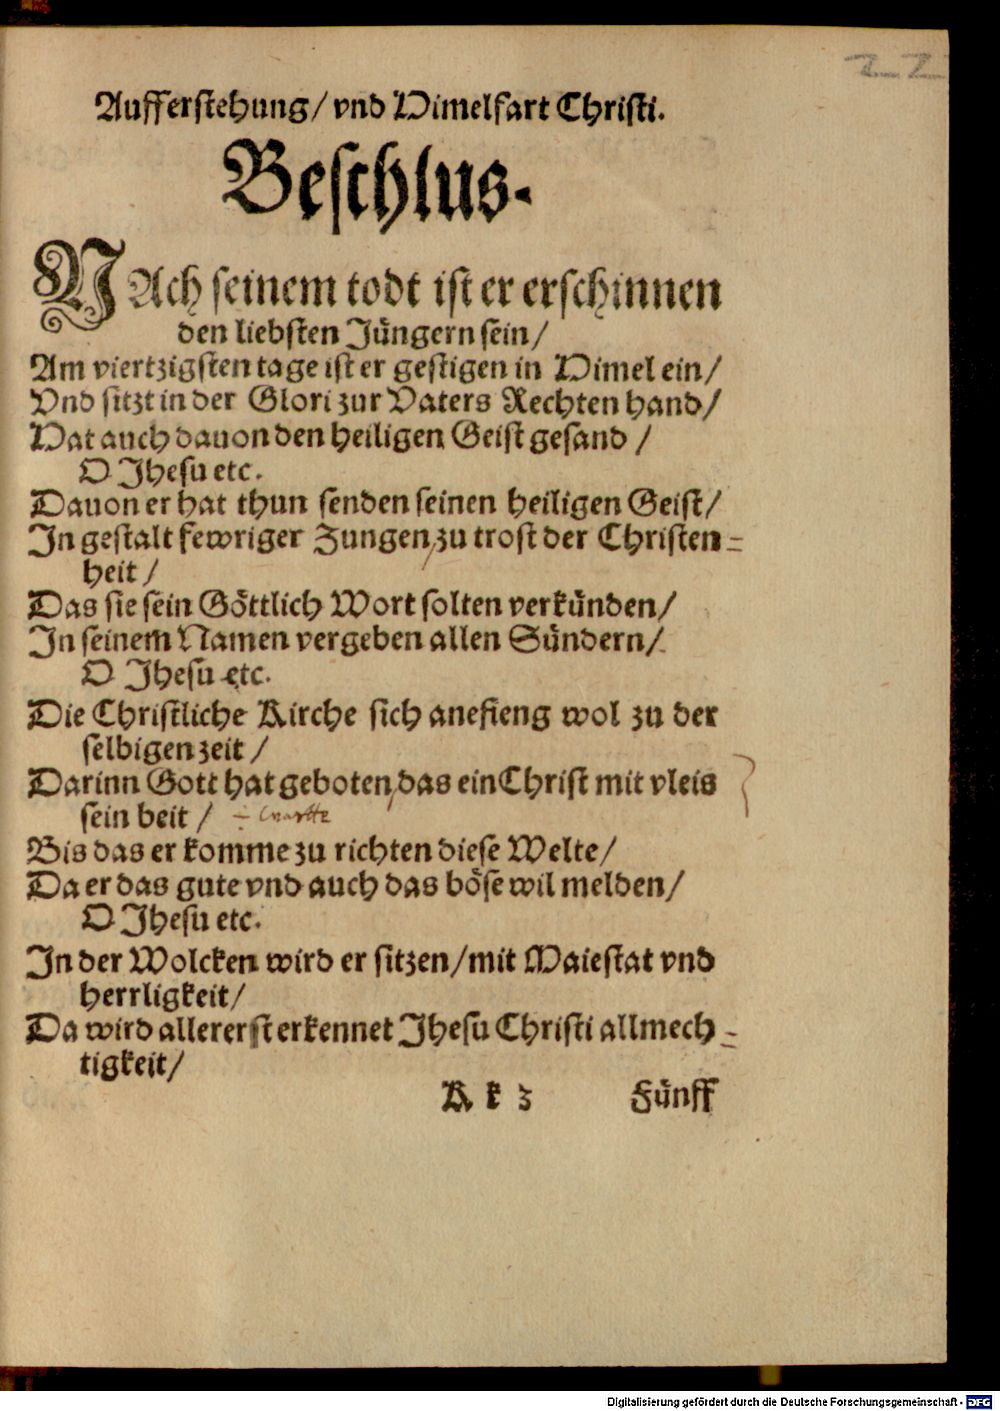 22
Aufferstehung/ vnd Himelfart Christi.
Beschlus.
NAch seinem todt ist er erschinnen
den liebsten Jüngern sein/
Am viertzigsten tage ist er gestigen in Himel ein/
Vnd sitzt in der Glori zur Vaters Rechten hand/
Hat auch dauon den heiligen Geist gesand /
O Jhesu etc.
Dauon er hat thun senden seinen heiligen Geist/
In gestalt fewriger Zungen, zu trost der Christen=
heit /
Das sie sein Göttlich Wort solten verkünden/
In seinem Namen vergeben allen Sündern/
O Jhesu etc.
Die Christliche Kirche sich anefieng wol zu der
selbigen zeit /
Darinn Gott hat geboten, das ein Christ mit vleis
sein beit / ÷ wartte
Bis das er komme zu richten diese Welte/
Da er das gute vnd auch das böse wil melden/
O Jhesu etc.
In der Wolcken wird er sitzen/mit Maiestat vnd
herrligkeit/
Da wird allererst erkennet Jhesu Christi allmech=
tigkeit/
K k 3 Fünff
Digitalisierung gefördert durch die Deutsche Forschungsgemeinschaft - DFG